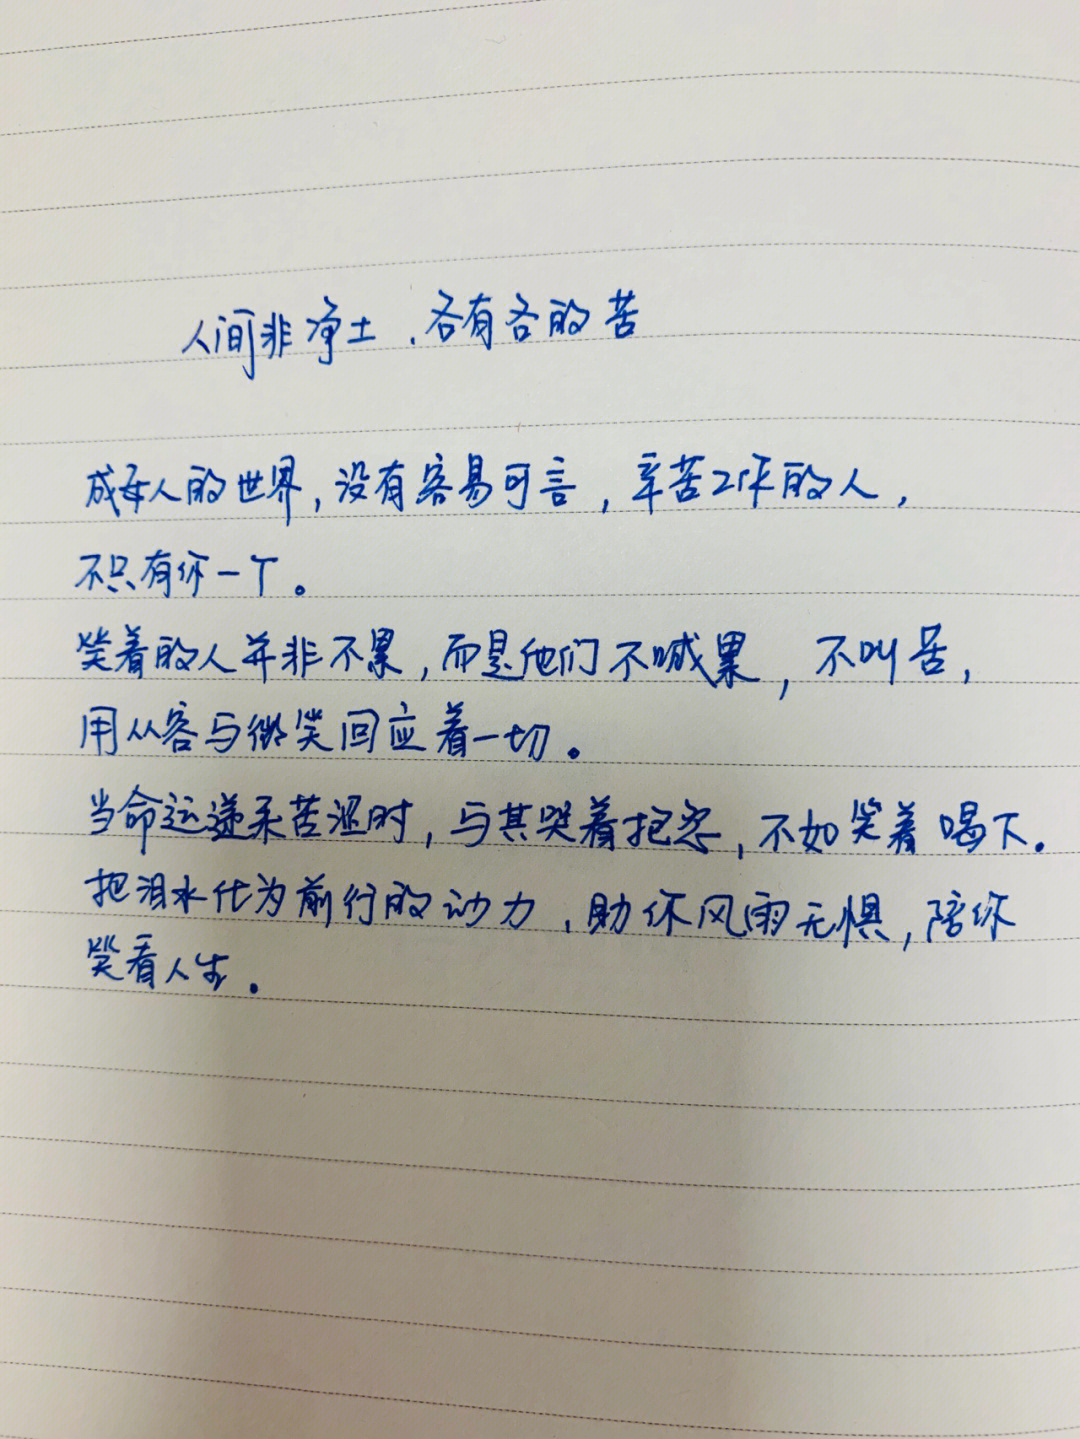 人间非净土,各有各的苦
成年人的世界,没有容易可言,辛苦工作的人,
不只有你一个。
笑着的人并非不累,而是他们不喊累,不叫苦,
用从容与微笑回应着一切。
当命运递来苦涩时,与其哭着抱怨,不如笑着喝下。
把泪水化为前行的动力,助你风雨无惧,陪你
笑看人生。